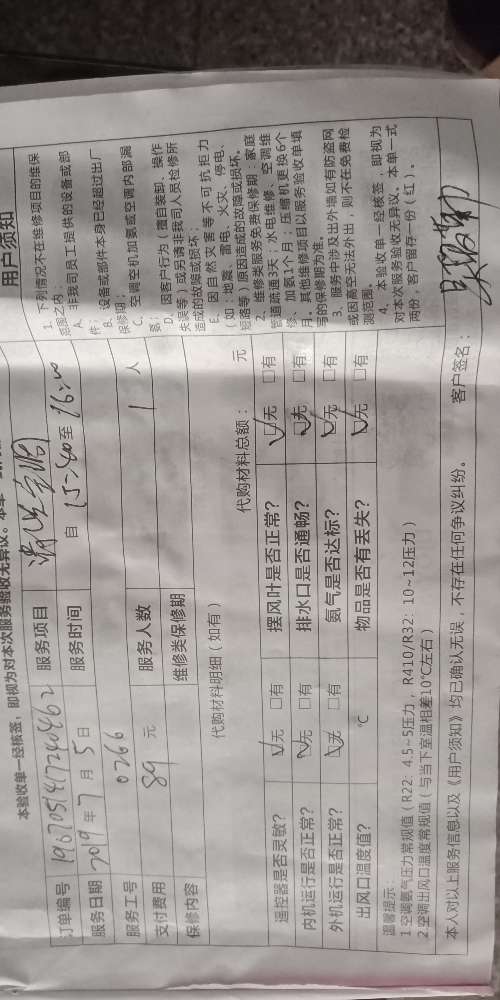 本验收单一经核签，即视为对本次服务验收无异议。本单一
订单编号
服务项目 清洗空调
用户须知
服务日期 2019年7月5日
服务时间 自 15:40 至 16:00
服务工号 0266
支付费用 89 元
服务人数 1 人
保修内容
维修类保修期
代购材料明细（如有）
代购材料总额： 元
遥控器是否灵敏？ ☑无 □有
摆风叶是否正常？ ☑无 □有
内机运行是否正常？ ☑无 □有
排水口是否通畅？ ☑无 □有
外机运行是否正常？ ☑无 □有
氨气是否达标？ ☑无 □有
出风口温度值？ ℃
物品是否有丢失？ ☑无 □有
1、下列情况不在维修项目的维保
范围之内
A、非我司员工提供的设备或部
件；
B、设备或部件本身已经超过出厂
保修期；
C、空调空机加氨或空调内部漏
氨；
D、因客户行为（擅自装卸、操作
失误等）或另请非我司人员检修所
造成的故障或损坏；
E、因自然灾害等不可抗拒力
（如：地震、雷电、火灾、停电、
短路等）原因造成的故障或损坏。
2、维修类服务免费保修期：家庭
管道疏通3天；水电维修、空调维
修、加氨1个月；压缩机更换6个
月。其他维修项目以服务验收单填
写的保修期为准。
3、服务中涉及出外墙如有防盗网
或因高空无法外出，则不在免费检
测范围。
4、本验收单一经核签，即视为
对本次服务验收无异议。本单一式
两份，客户留存一份（红）。
温馨提示：
1 空调氨气压力常规值（R22：4.5~5压力，R410/R32：10~12压力）
2 空调出风口温度常规值（与当下室温相差10℃左右）
本人对以上服务信息以及《用户须知》均已确认无误，不存在任何争议纠纷。 客户签名：